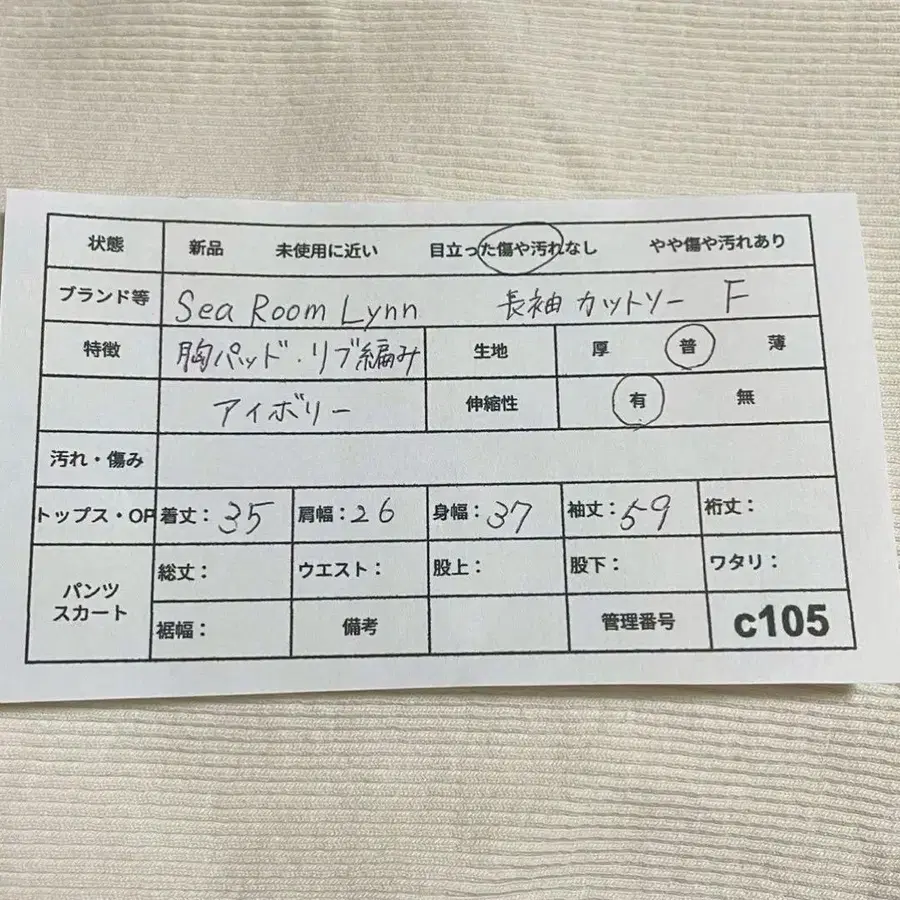 状態 新品 未使用に近い 目立った傷や汚れなし やや傷や汚れあり
ブランド等 Sea Room Lynn 長袖 カットソー F
特徴 胸パッド・リブ編み 生地 厚 普 薄
アイボリー 伸縮性 有 無
汚れ・傷み
トップス・OP 着丈：35 肩幅：26 身幅：37 袖丈：59 裄丈：
パンツ スカート 総丈： ウエスト： 股上： 股下： ワタリ：
裾幅： 備考 管理番号 c105